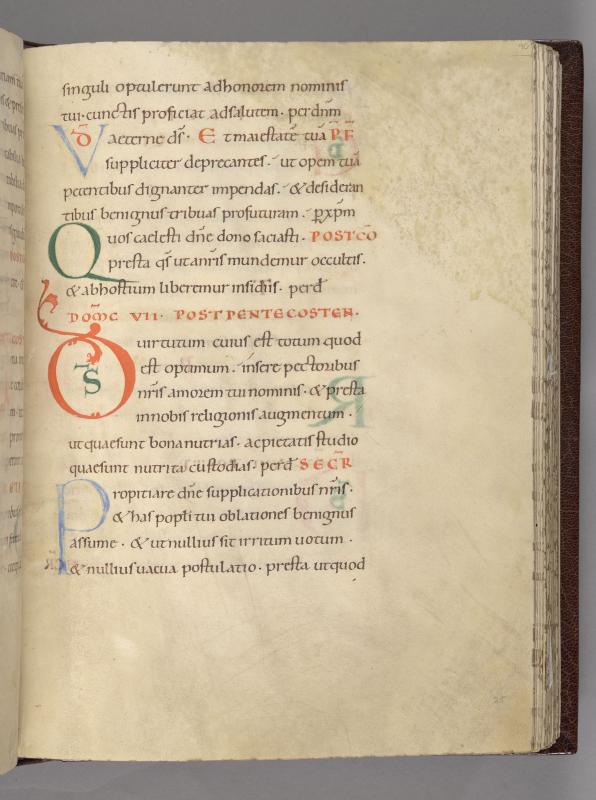 singuli optulerunt ad honorem nominis
tui · cunctis proficiat ad salutem · per dnm̄
VD aeterne ds̄ · Et maiestatē tuā P̄F̄
suppliciter deprecantes · ut opem tuā
petentibus dignanter impendas · & desideran
tibus benignus tribuas profuturam · p xp̄m
Quos caelesti dn̄e dono satiasti · POSTCŌ
presta qs̄ ut a nr̄is mundemur occultis ·
& ab hostium liberemur insidiis · perd̄
DOM̄C VII · POST PENTECOSTEN ·
DS uirtutum cuius est totum quod
est optimum · insere pectoribus
nr̄is amorem tui nominis · & presta
in nobis religionis augmentum ·
ut quae sunt bona nutrias · ac pietatis studio
quae sunt nutrita custodias · perd̄ SECR̄
Propitiare dn̄e supplicationibus nr̄is ·
& has popli tui oblationes benignus
assume · & ut nullius sit irritum uotum ·
& nullius uacua postulatio · presta ut quod